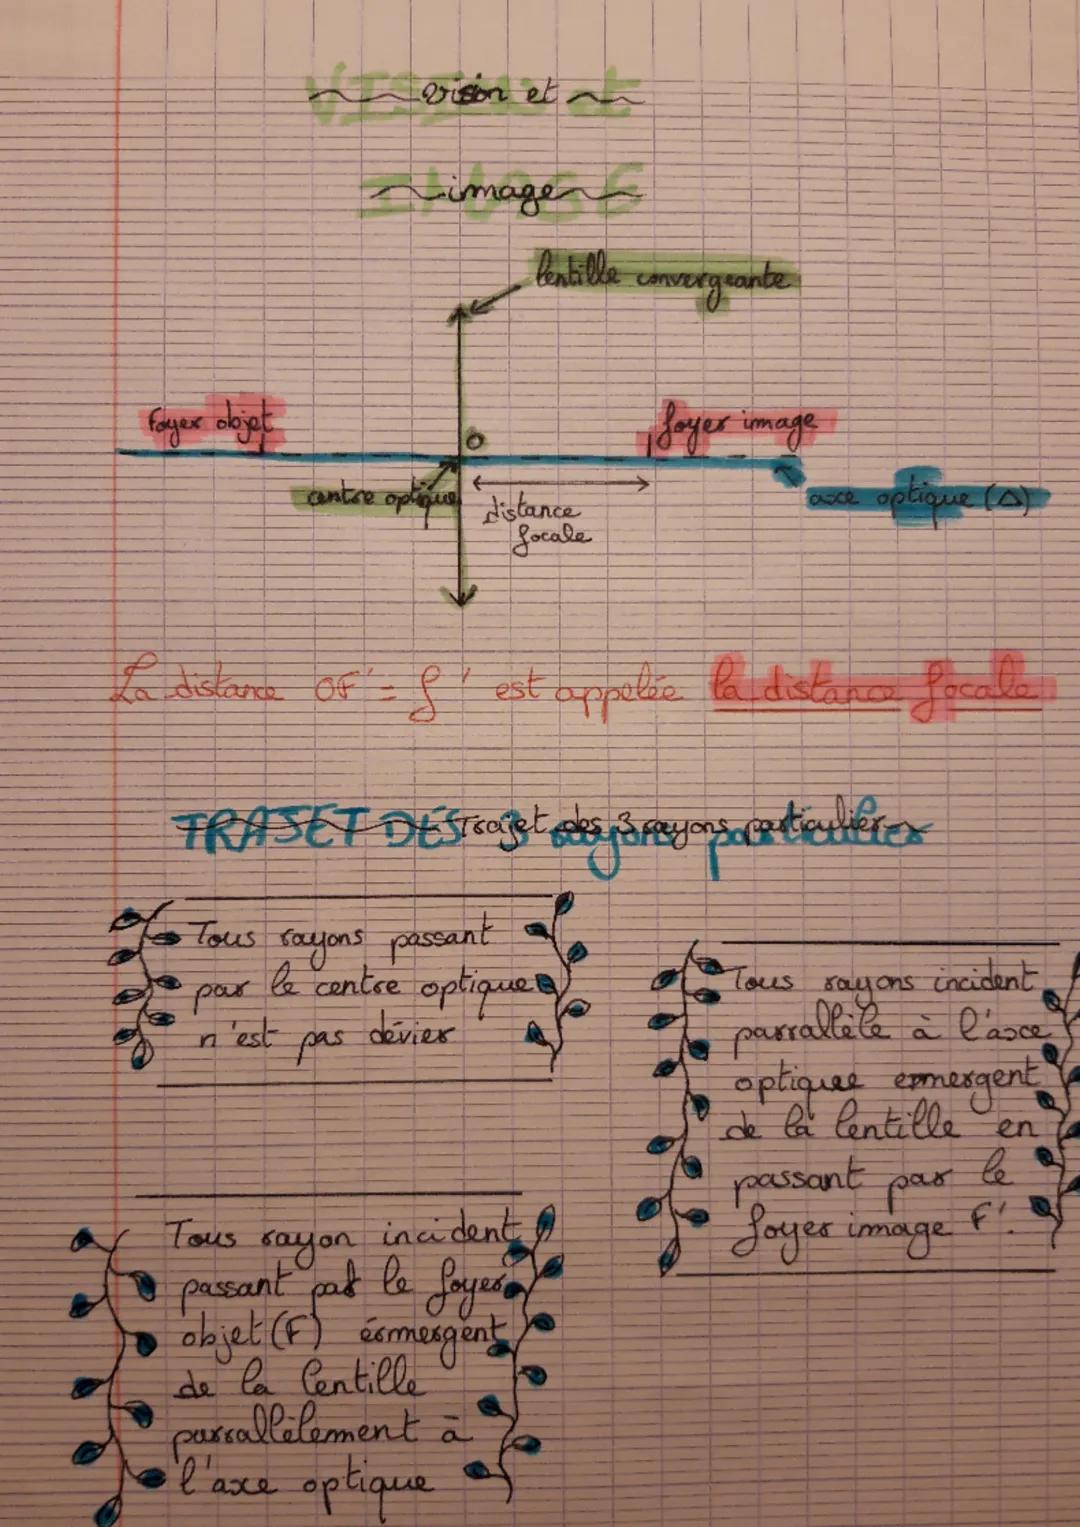 VISION et
vision et
IMAGE
image
lentille convergeante
foyer objet
O
foyer image
centre optique
distance
focale
axe optique (Δ)
La distance OF' = f' est appelée la distance focale
TRAJET DES 3 rayons particulier
Trajet des 3 rayons particulier
Tous rayons passant
par le centre optique
n'est pas dévier
Tous rayons incident
parrallèle à l'axe
optiquee ermergent
de la lentille en
passant par le
foyer image F'.
Tous rayon incident
passant par le foyer
objet (F) érmergent
de la lentille
parrallèlement à
l'axe optique